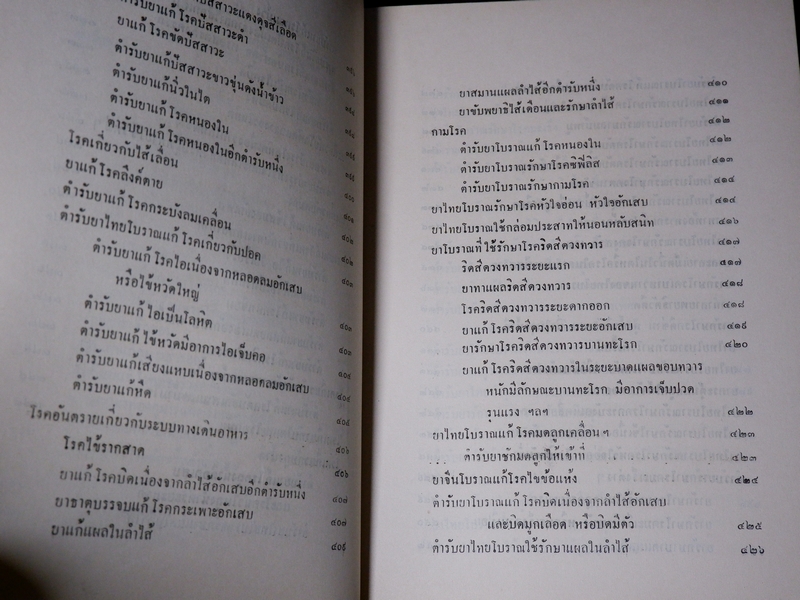 ปัสสาวะแดงดุจสีเลือด
ตำรับยาแก้โรคปัสสาวะดำ
ยาแก้โรคขัดปัสสาวะ
ตำรับยาแก้ปัสสาวะขาวขุ่นดังน้ำข้าว
ตำรับยาแก้นิ่วในไต
ตำรับยาแก้โรคหนองใน
ตำรับยาแก้โรคหนองในอีกตำรับหนึ่ง
โรคเกี่ยวกับไส้เลื่อน
ยาแก้โรคลึงค์ตาย
ตำรับยาแก้โรคกระบังลมเคลื่อน
ตำรับยาไทยโบราณแก้โรคเกี่ยวกับปอด
ตำรับยาแก้โรคไอเนื่องจากหลอดลมอักเสบ
หรือไข้หวัดใหญ่ ๔๐๓
ตำรับยาแก้ไอเป็นโลหิต ๔๐๓
ตำรับยาแก้ไข้หวัดมีอาการไอเจ็บคอ ๔๐๓
ตำรับยาแก้เสียงแหบเนื่องจากหลอดลมอักเสบ ๔๐๔
ตำรับยาแก้หืด ๔๐๕
โรคอันตรายเกี่ยวกับระบบทางเดินอาหาร ๔๐๖
โรคไข้รากสาด ๔๐๖
ยาแก้โรคบิดเนื่องจากลำไส้อักเสบอีกตำรับหนึ่ง ๔๐๗
ยาธาตุบรรจบแก้โรคกระเพาะอักเสบ ๔๐๗
ยาแก้แผลในลำไส้ ๔๐๙
ยาสมานแผลลำไส้อีกตำรับหนึ่ง ๔๑๐
ยาขับพยาธิไส้เดือนและรักษาลำไส้ ๔๑๑
กามโรค ๔๑๒
ตำรับยาโบราณแก้โรคหนองใน ๔๑๒
ตำรับยาโบราณรักษาโรคซิฟิลิส ๔๑๓
ตำรับยาโบราณรักษากามโรค ๔๑๔
ยาไทยโบราณรักษาโรคหัวใจอ่อน หัวใจอักเสบ ๔๑๔
ยาไทยโบราณใช้กล่อมประสาทให้นอนหลับสนิท ๔๑๖
ยาโบราณที่ใช้รักษาโรคริดสีดวงทวาร ๔๑๗
ริดสีดวงทวารระยะแรก ๔๑๗
ยาทาแผลริดสีดวงทวาร ๔๑๘
โรคริดสีดวงทวารระยะตากออก ๔๑๘
ยาแก้โรคริดสีดวงทวารระยะอักเสบ ๔๑๙
ยารักษาโรคริดสีดวงทวารบานทะโรก ๔๒๐
ยาแก้โรคริดสีดวงทวารในระยะบาดแผลขอบทวาร
หนักมีลักษณะบานทะโรก มีอาการเจ็บปวด
รุนแรง ฯลฯ ๔๒๒
ยาไทยโบราณแก้โรคมดลูกเคลื่อนฯ ๔๒๓
ตำรับยาชักมดลูกให้เข้าที่ ๔๒๓
ยาจีนโบราณแก้โรคไขข้อแห้ง ๔๒๔
ตำรับยาโบราณแก้โรคบิดเนื่องจากลำไส้อักเสบ
และบิดมูกเลือด หรือบิดมีตัว ๔๒๕
ตำรับยาไทยโบราณใช้รักษาแผลในลำไส้ ๔๒๖